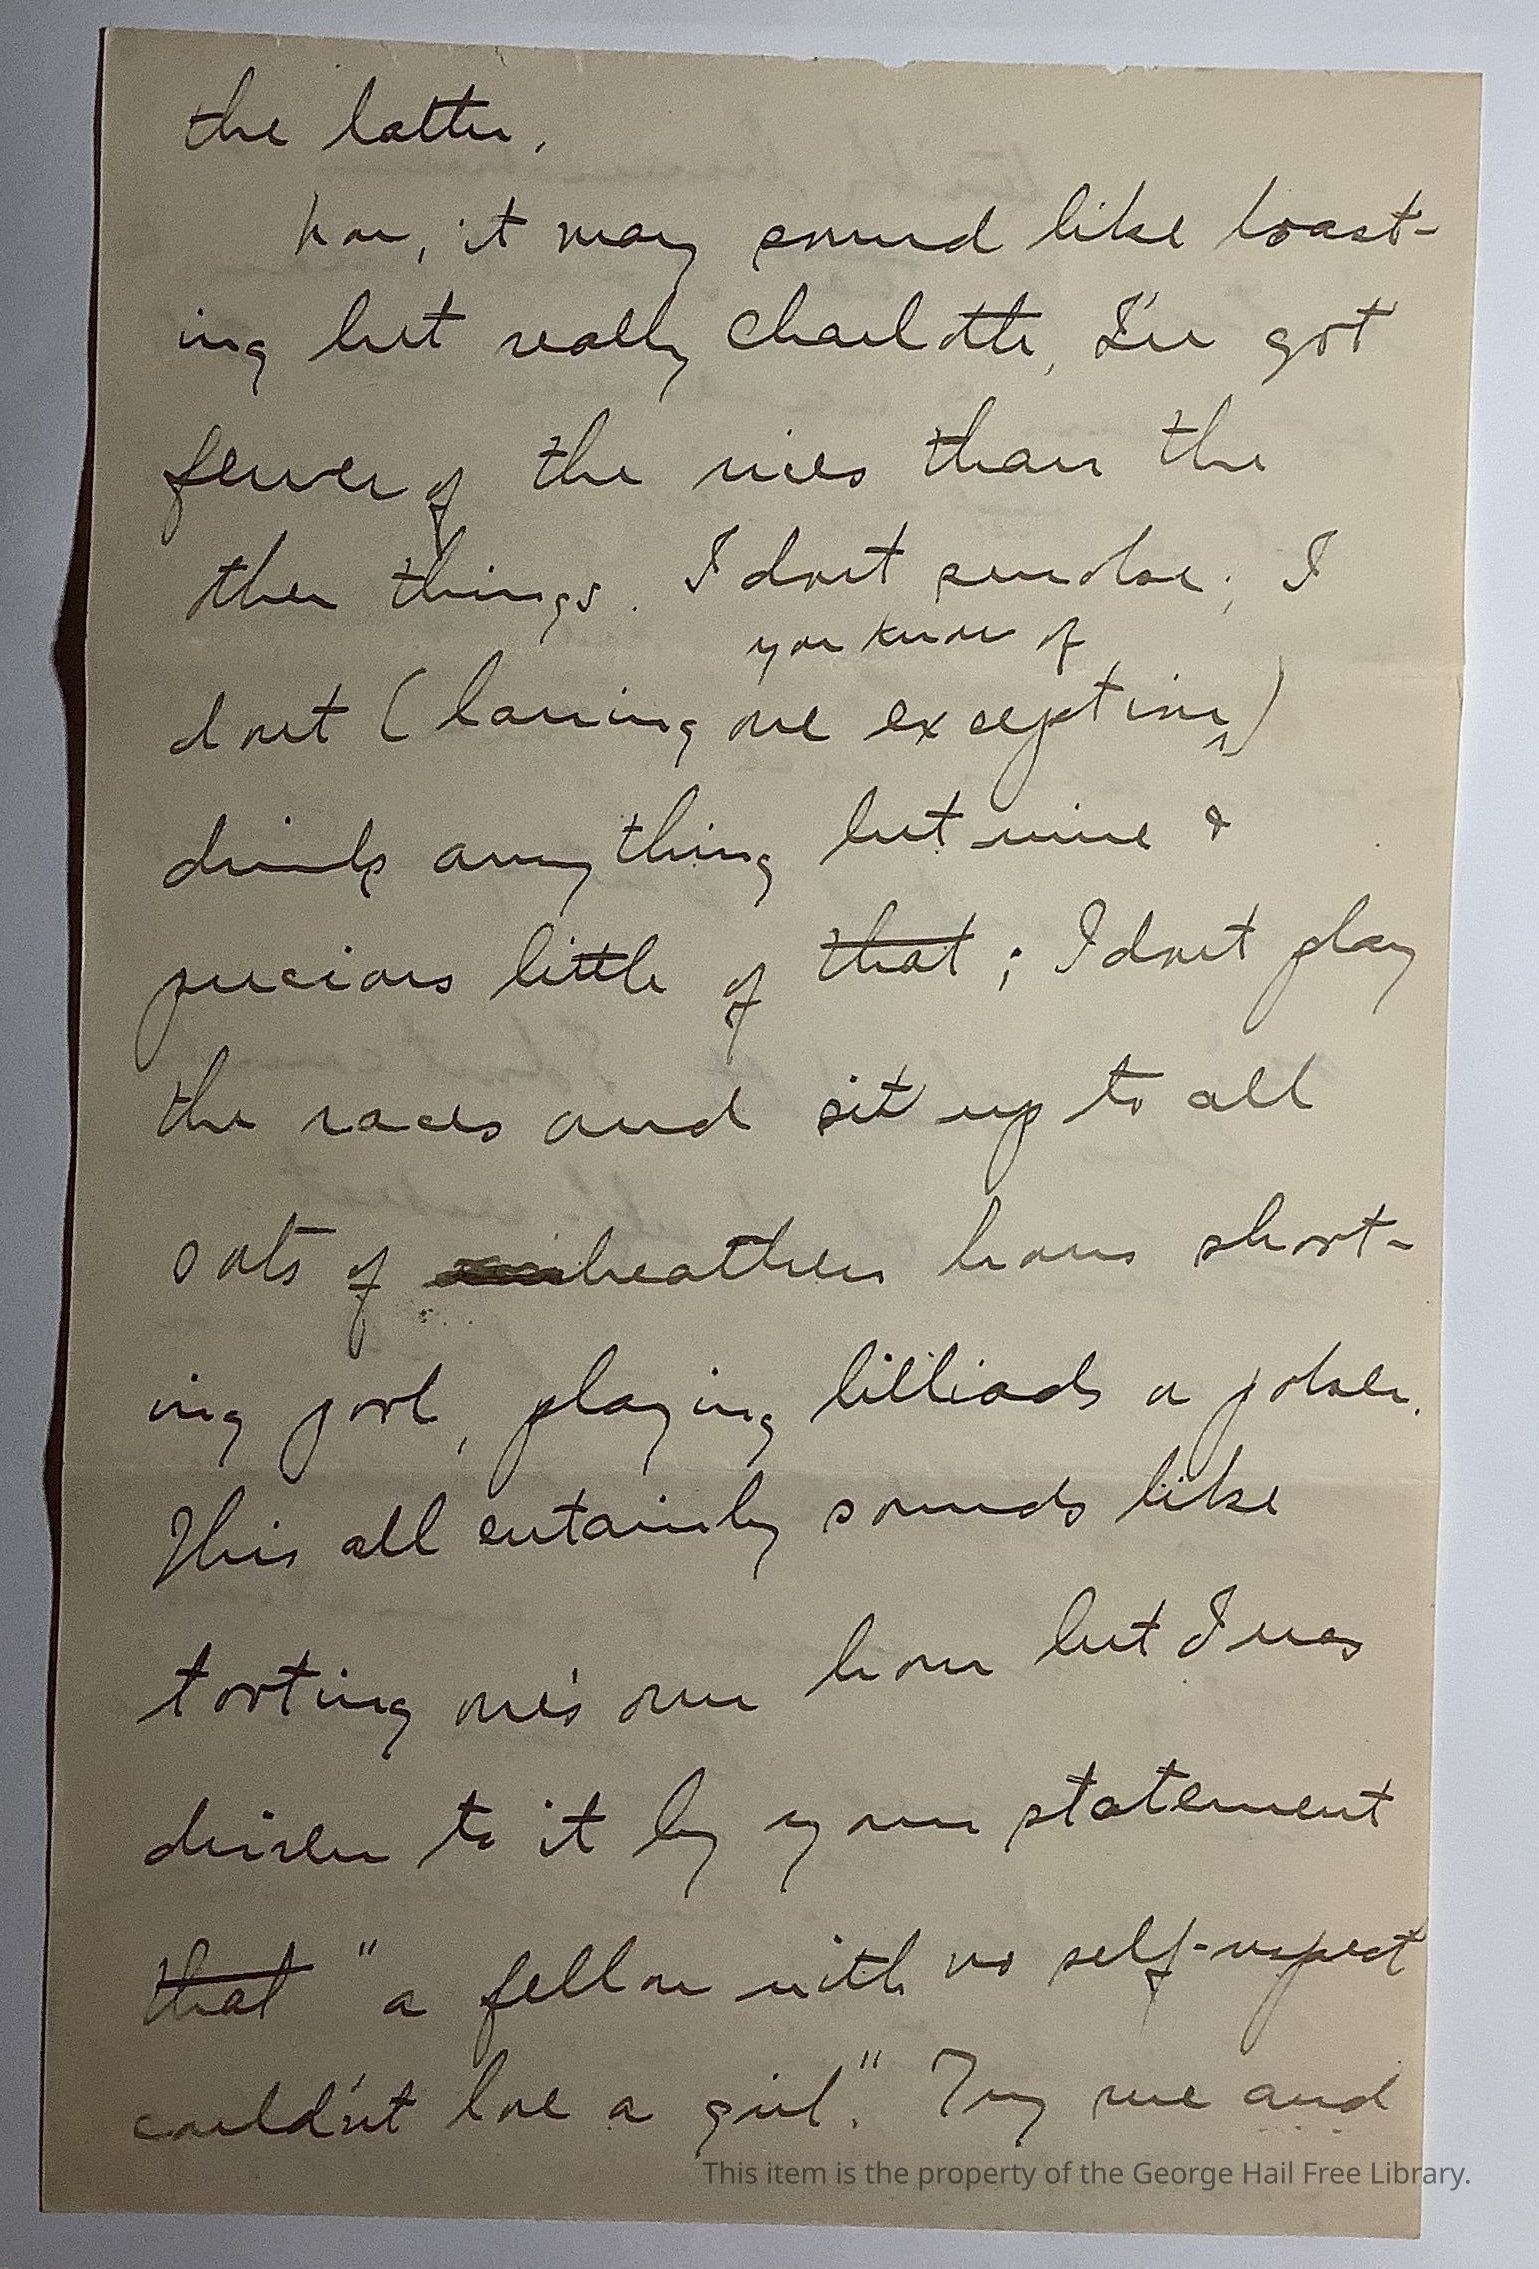 the latter.
Now, it may sound like boast-
ing but really Charlotte, I've got
fewer of the vices than the
other things. I don't smoke; I
you know of
don't (barring one exception^)
drink anything but wine &
precious little of that; I don't play
the races and sit up to all
sorts of heathen hours shoot-
ing pool, playing billiards or poker.
This all certainly sounds like
tooting one's own horn but I was
driven to it by your statement
that "a fellow with no self-respect
couldn't love a girl." Try me and
This item is the property of the George Hail Free Library.